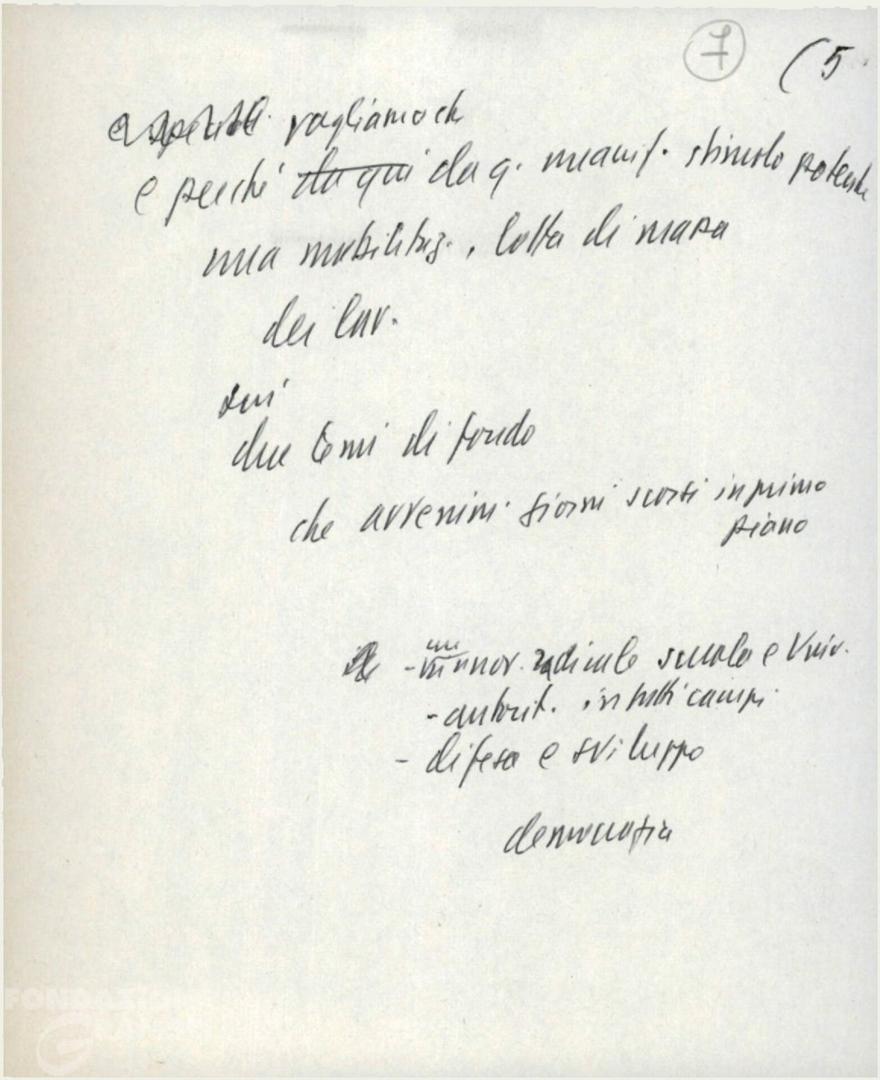 7 (5
vogliamo ch
e perché da qui da q. manif. stimolo potente
una mobilitaz., lotta di massa
dei lav.
sui
due temi di fondo
che avvenim. giorni scorsi in primo
piano
- rinnov. radicale scuola e Univ.
- autorit. in tutti campi
- difesa e sviluppo
democrazia
FONDAZIONE